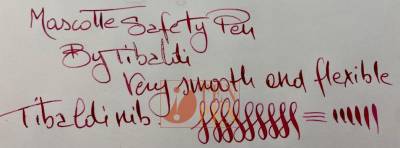 Mascotte Safety Pen
By Tibaldi
Very smooth and flexible
Tibaldi nib